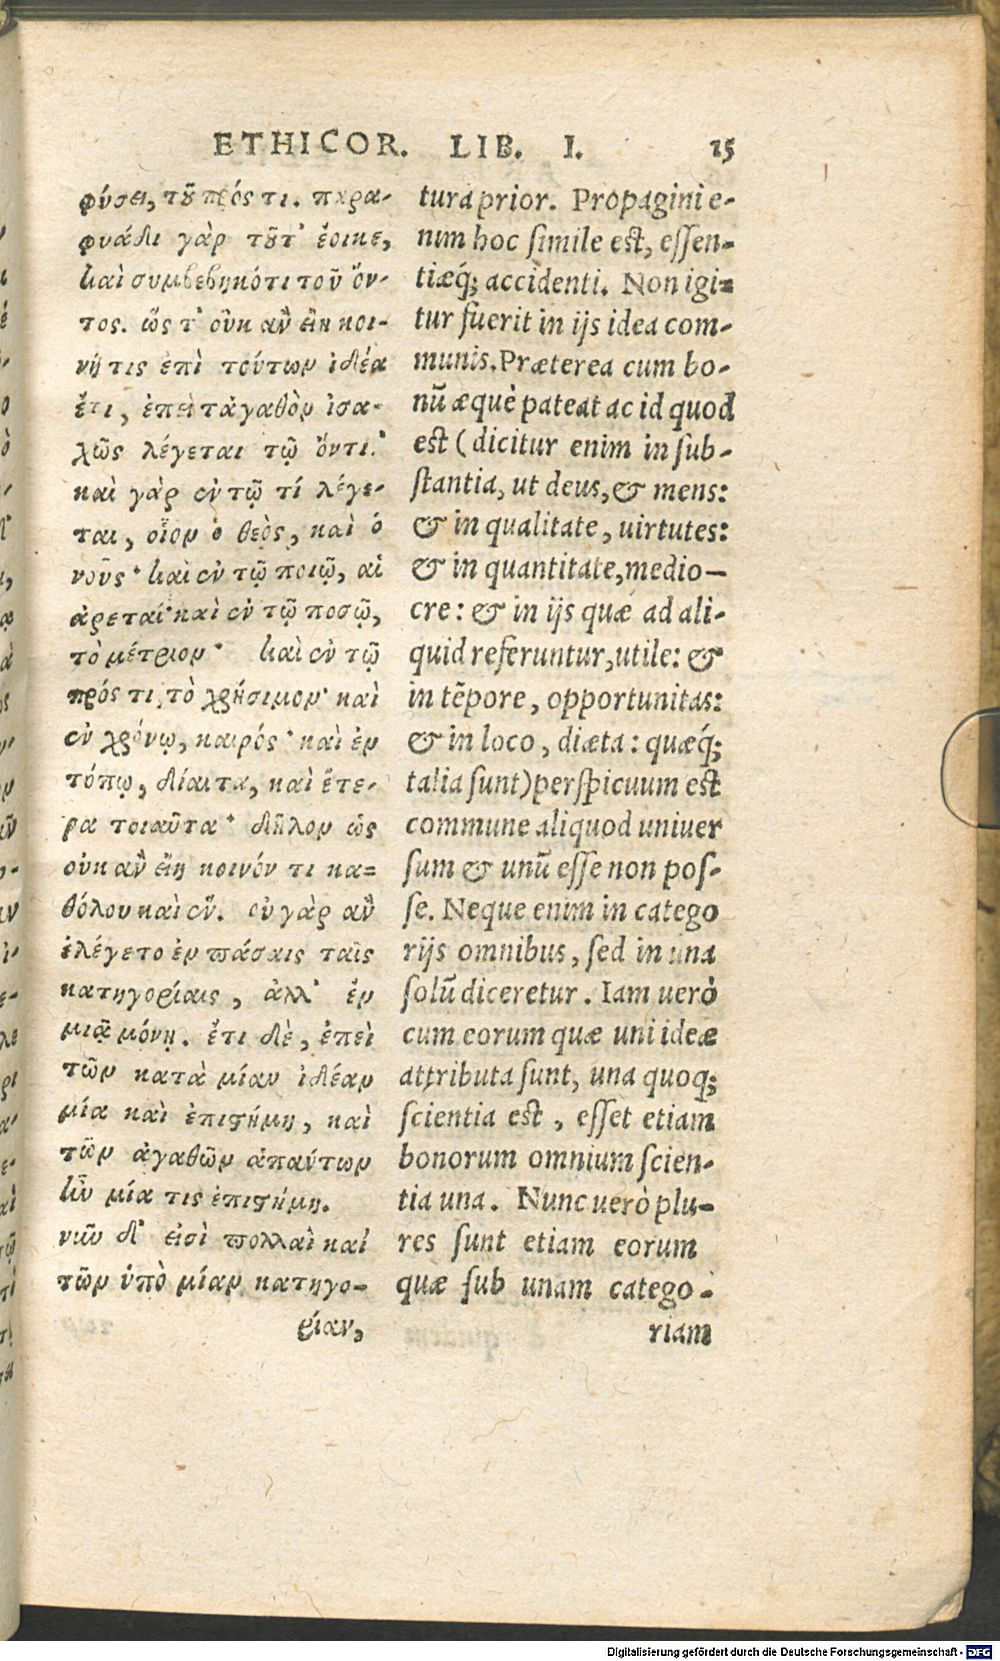 ETHICOR. LIB. I. 15
φύσει, τοῦ πρός τι. παρα-
φυάδι γὰρ τοῦτ' ἔοικε,
καὶ συμβεβηκότι τοῦ ὄν-
τος. ὥς τ' οὐκ ἂν εἴη κοι-
νή τις ἐπὶ τούτων ἰδέα
ἔτι, ἐπεὶ τἀγαθὸν ἰσα-
χῶς λέγεται τῷ ὄντι.
καὶ γὰρ ἐν τῷ τί λέγε-
ται, οἷον ὁ θεὸς, καὶ ὁ
νοῦς· καὶ ἐν τῷ ποιῷ, αἱ
ἀρεταί· καὶ ἐν τῷ ποσῷ,
τὸ μέτριον· καὶ ἐν τῷ
πρός τι, τὸ χρήσιμον· καὶ
ἐν χρόνῳ, καιρός· καὶ ἐν
τόπῳ, δίαιτα, καὶ ἕτε-
ρα τοιαῦτα· δῆλον ὡς
οὐκ ἂν εἴη κοινόν τι κα=
θόλου καὶ ἕν. οὐ γὰρ ἂν
ἐλέγετο ἐν πάσαις ταῖς
κατηγορίαις, ἀλλ' ἐν
μιᾷ μόνῃ. ἔτι δὲ, ἐπεὶ
τῶν κατὰ μίαν ἰδέαν
μία καὶ ἐπιστήμη, καὶ
τῶν ἀγαθῶν ἁπάντων
ἦν μία τις ἐπιστήμη.
νῦν δ' εἰσὶ πολλαὶ καί
τῶν ὑπὸ μίαν κατηγο-
ρίαν,
tura prior. Propagini e-
nim hoc simile est, essen-
tiæq́; accidenti. Non igi=
tur fuerit in ijs idea com-
munis. Præterea cum bo-
nū æquè pateat ac id quod
est (dicitur enim in sub-
stantia, ut deus, & mens:
& in qualitate, uirtutes:
& in quantitate, medio-
cre: & in ijs quæ ad ali-
quid referuntur, utile: &
in tēpore, opportunitas:
& in loco, diæta: quæq́;
talia sunt) perspicuum est
commune aliquod uniuer
sum & unū esse non pos-
se. Neque enim in catego
rijs omnibus, sed in una
solū diceretur. Iam uerò
cum eorum quæ uni ideæ
attributa sunt, una quoq;
scientia est, esset etiam
bonorum omnium scien-
tia una. Nunc uerò plu-
res sunt etiam eorum
quæ sub unam catego-
riam
Digitalisierung gefördert durch die Deutsche Forschungsgemeinschaft - DFG